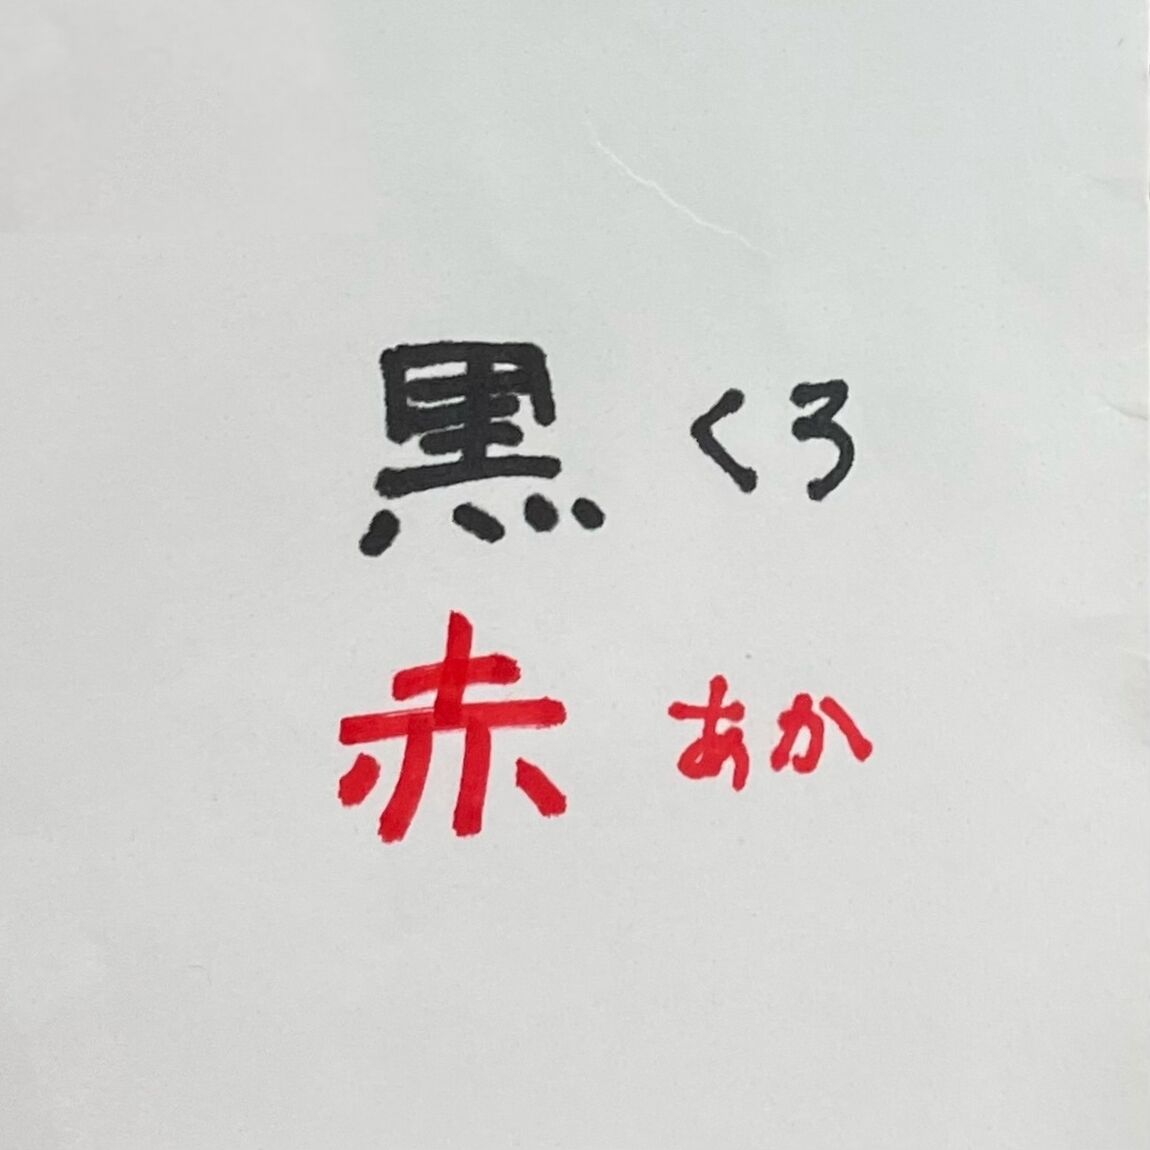 黒 くろ
赤 あか